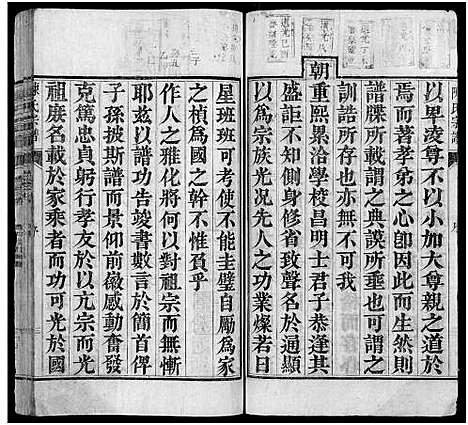 陳氏宗譜
以卑凌尊不以小加大尊親之道於
焉而著孝弟之心卽因此而生然則
譜牒所載所謂之典謨所垂可謂之
訓誥所存也亦無不可我
朝重熙累洽學校昌明士君子恭逢其
盛詎不側身修省致聲名於通顯
以為宗族光況先人之功業燦若日
星班班可考使不能圭璧自勵為家
之楨為國之幹不惟負乎
作人之雅化將何以對祖宗而無慚
耶茲以譜功告竣書數言於簡首俾
子孫披斯譜而景仰前徽感動奮發
克篤忠貞躬行孝友於以亢宗而光
祖庶名載於家乘者而功可光於國
陳氏宗譜
序